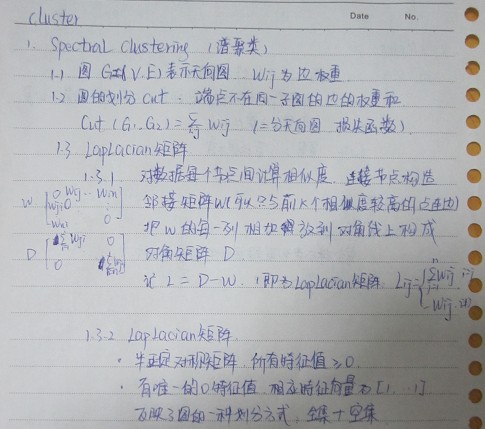 cluster
Date No.
1. Spectral Clustering (谱聚类)
1.1 图 G=(V.E)表示无向图 Wij 为边权重
1.2 图的划分 Cut. 端点不在同一子图的边的权重和
Cut (G1.G2) = Σij Wij (二分无向图 损失函数)
1.3 Laplacian矩阵
1.3.1 对数据每个节点间计算相似度 连接节点构造
邻接矩阵W(可以只与前k个相似度较高的点连边)
把W的每一列相加 放到对角线上构成
对角矩阵 D
记 L = D-W. (即为Laplacian矩阵
W
D
1.3.2 Laplacian矩阵
· 半正定对称矩阵 所有特征值 ≥0.
· 有唯一的0特征值 相应特征向量为 [1,...1]
反映了图的一种划分方式, 全集+空集